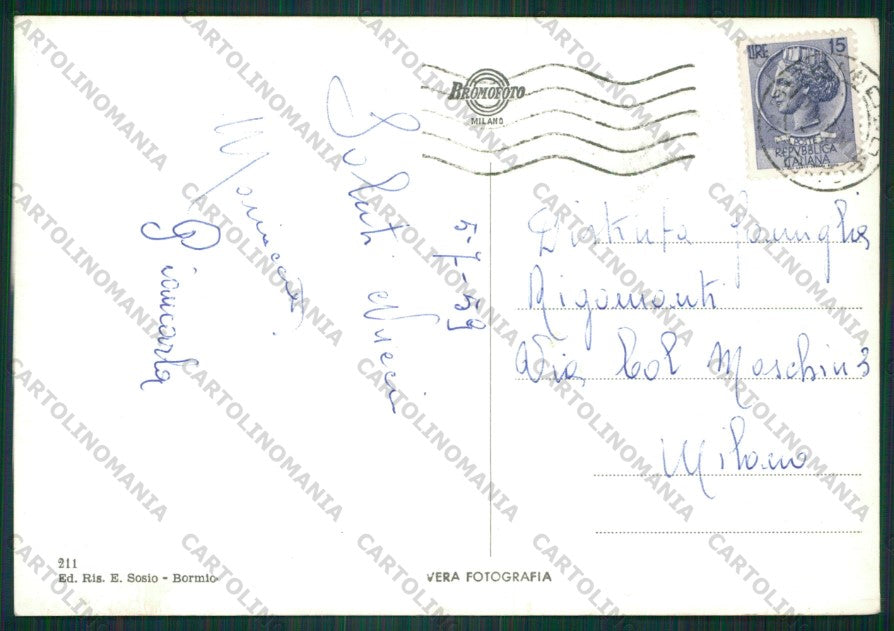 BROMOFOTO
MILANO
LIRE 15
POSTE
REPVBBLICA
ITALIANA
5-7-59
Saluti
Giancarla
Distinta Famiglia
Rigamonti
Via Col Moschin 3
Milano
211
Ed. Ris. E. Sosio - Bormio
VERA FOTOGRAFIA
CARTOLINOMANIA